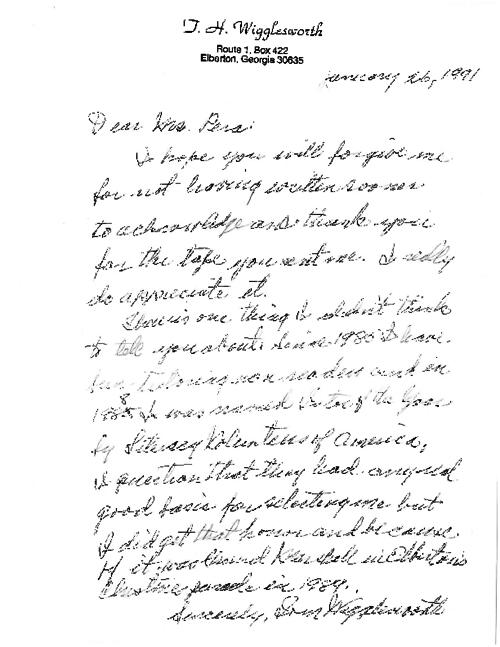 T. H. Wigglesworth
Route 1, Box 422
Elberton, Georgia 30635
January 26, 1991
Dear Mrs. Pera:
I hope you will forgive me
for not having written sooner
to acknowledge and thank you
for the tape you sent me. I really
do appreciate it.
There is one thing I didn't think
to tell you about. Since 1985 I have
been tutoring non readers and in
1988 I was named Tutor of the Year
by Literacy Volunteers of America.
I question that they had any real
good basis for selecting me but
I did get that honor and because
of it was Grand Marshall in Elberton's
Christmas parade in 1989.
Sincerely, Tom Wigglesworth